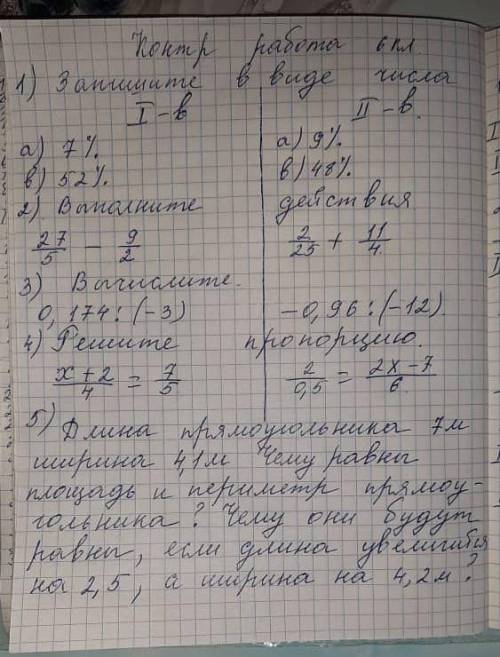 Контр работа 6 кл
1) Запишите в виде числа
I-в II-в.
а) 7% а) 9%.
в) 52%. в) 48%
2) Выполните действия
27/5 - 9/2 2/25 + 11/4.
3) Вычислите.
0,174:(-3) -0,96:(-12).
4) Решите пропорцию.
x+2/4 = 7/5 2/0,5 = 2x-7/6.
5) Длина прямоугольника 7м
ширина 4,1м Чему равны
площадь и периметр прямоу-
гольника? Чему они будут
равны, если длина увеличится
на 2,5, а ширина на 4,2м?